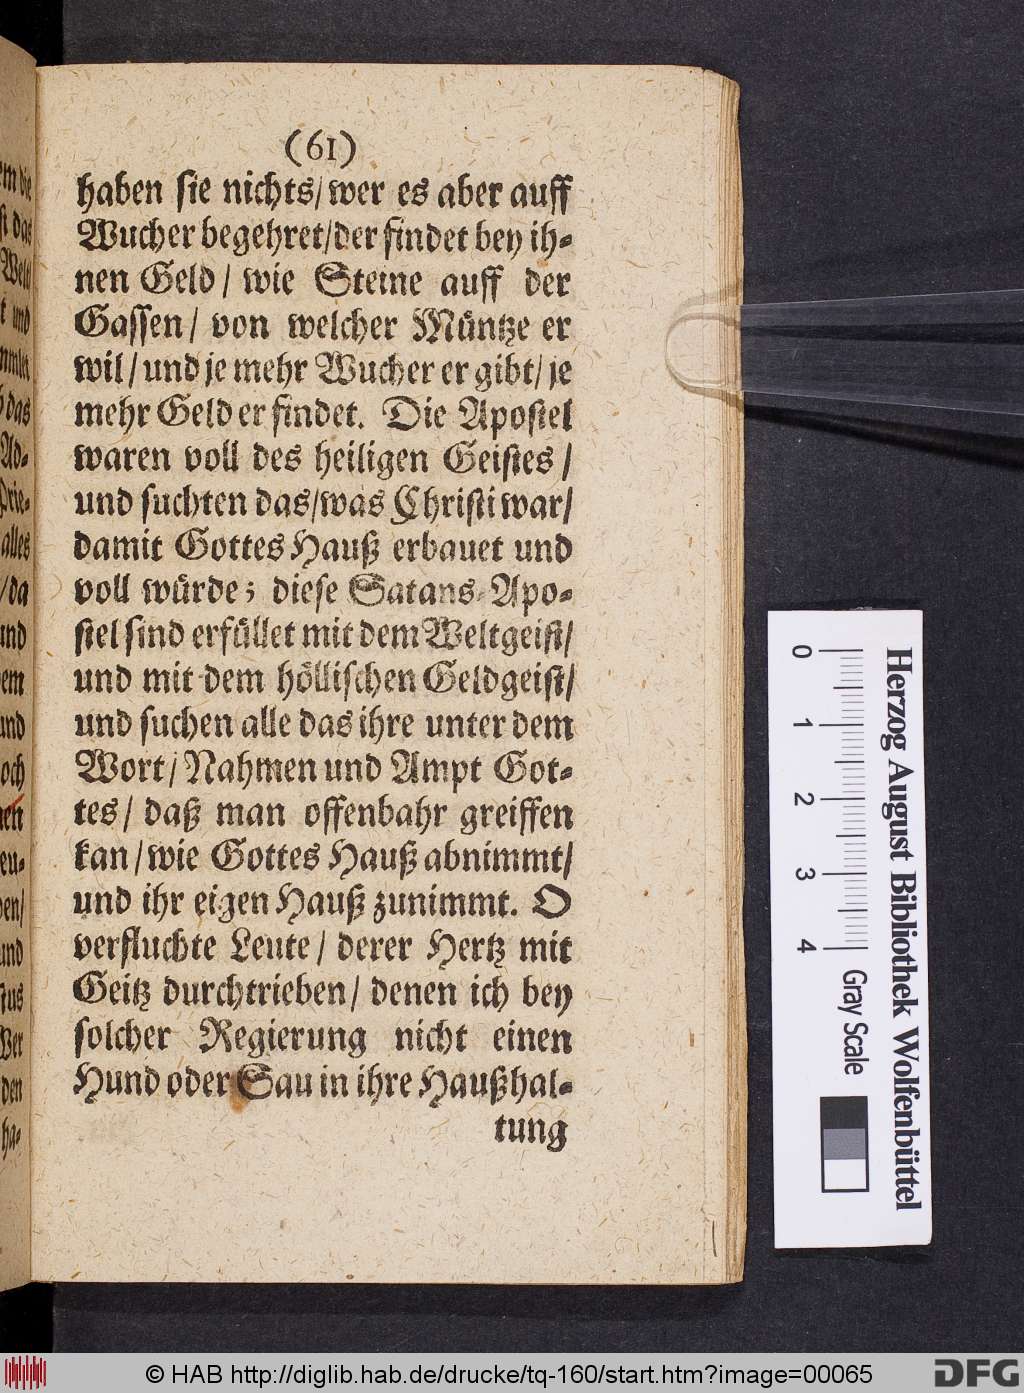 (61)
haben sie nichts/wer es aber auff
Wucher begehret/der findet bey ih-
nen Geld / wie Steine auff der
Gassen / von welcher Müntze er
wil / und je mehr Wucher er gibt/ je
mehr Geld er findet. Die Apostel
waren voll des heiligen Geistes /
und suchten das/was Christi war/
damit Gottes Hauß erbauet und
voll würde; diese Satans-Apo-
stel sind erfüllet mit dem Weltgeist/
und mit dem höllischen Geldgeist/
und suchen alle das ihre unter dem
Wort / Nahmen und Ampt Got-
tes / daß man offenbahr greiffen
kan / wie Gottes Hauß abnimmt/
und ihr eigen Hauß zunimmt. O
verfluchte Leute / derer Hertz mit
Geitz durchtrieben / denen ich bey
solcher Regierung nicht einen
Hund oder Sau in ihre Haußhal-
tung
Herzog August Bibliothek Wolfenbüttel
0 1 2 3 4
Gray Scale
© HAB http://diglib.hab.de/drucke/tq-160/start.htm?image=00065
DFG